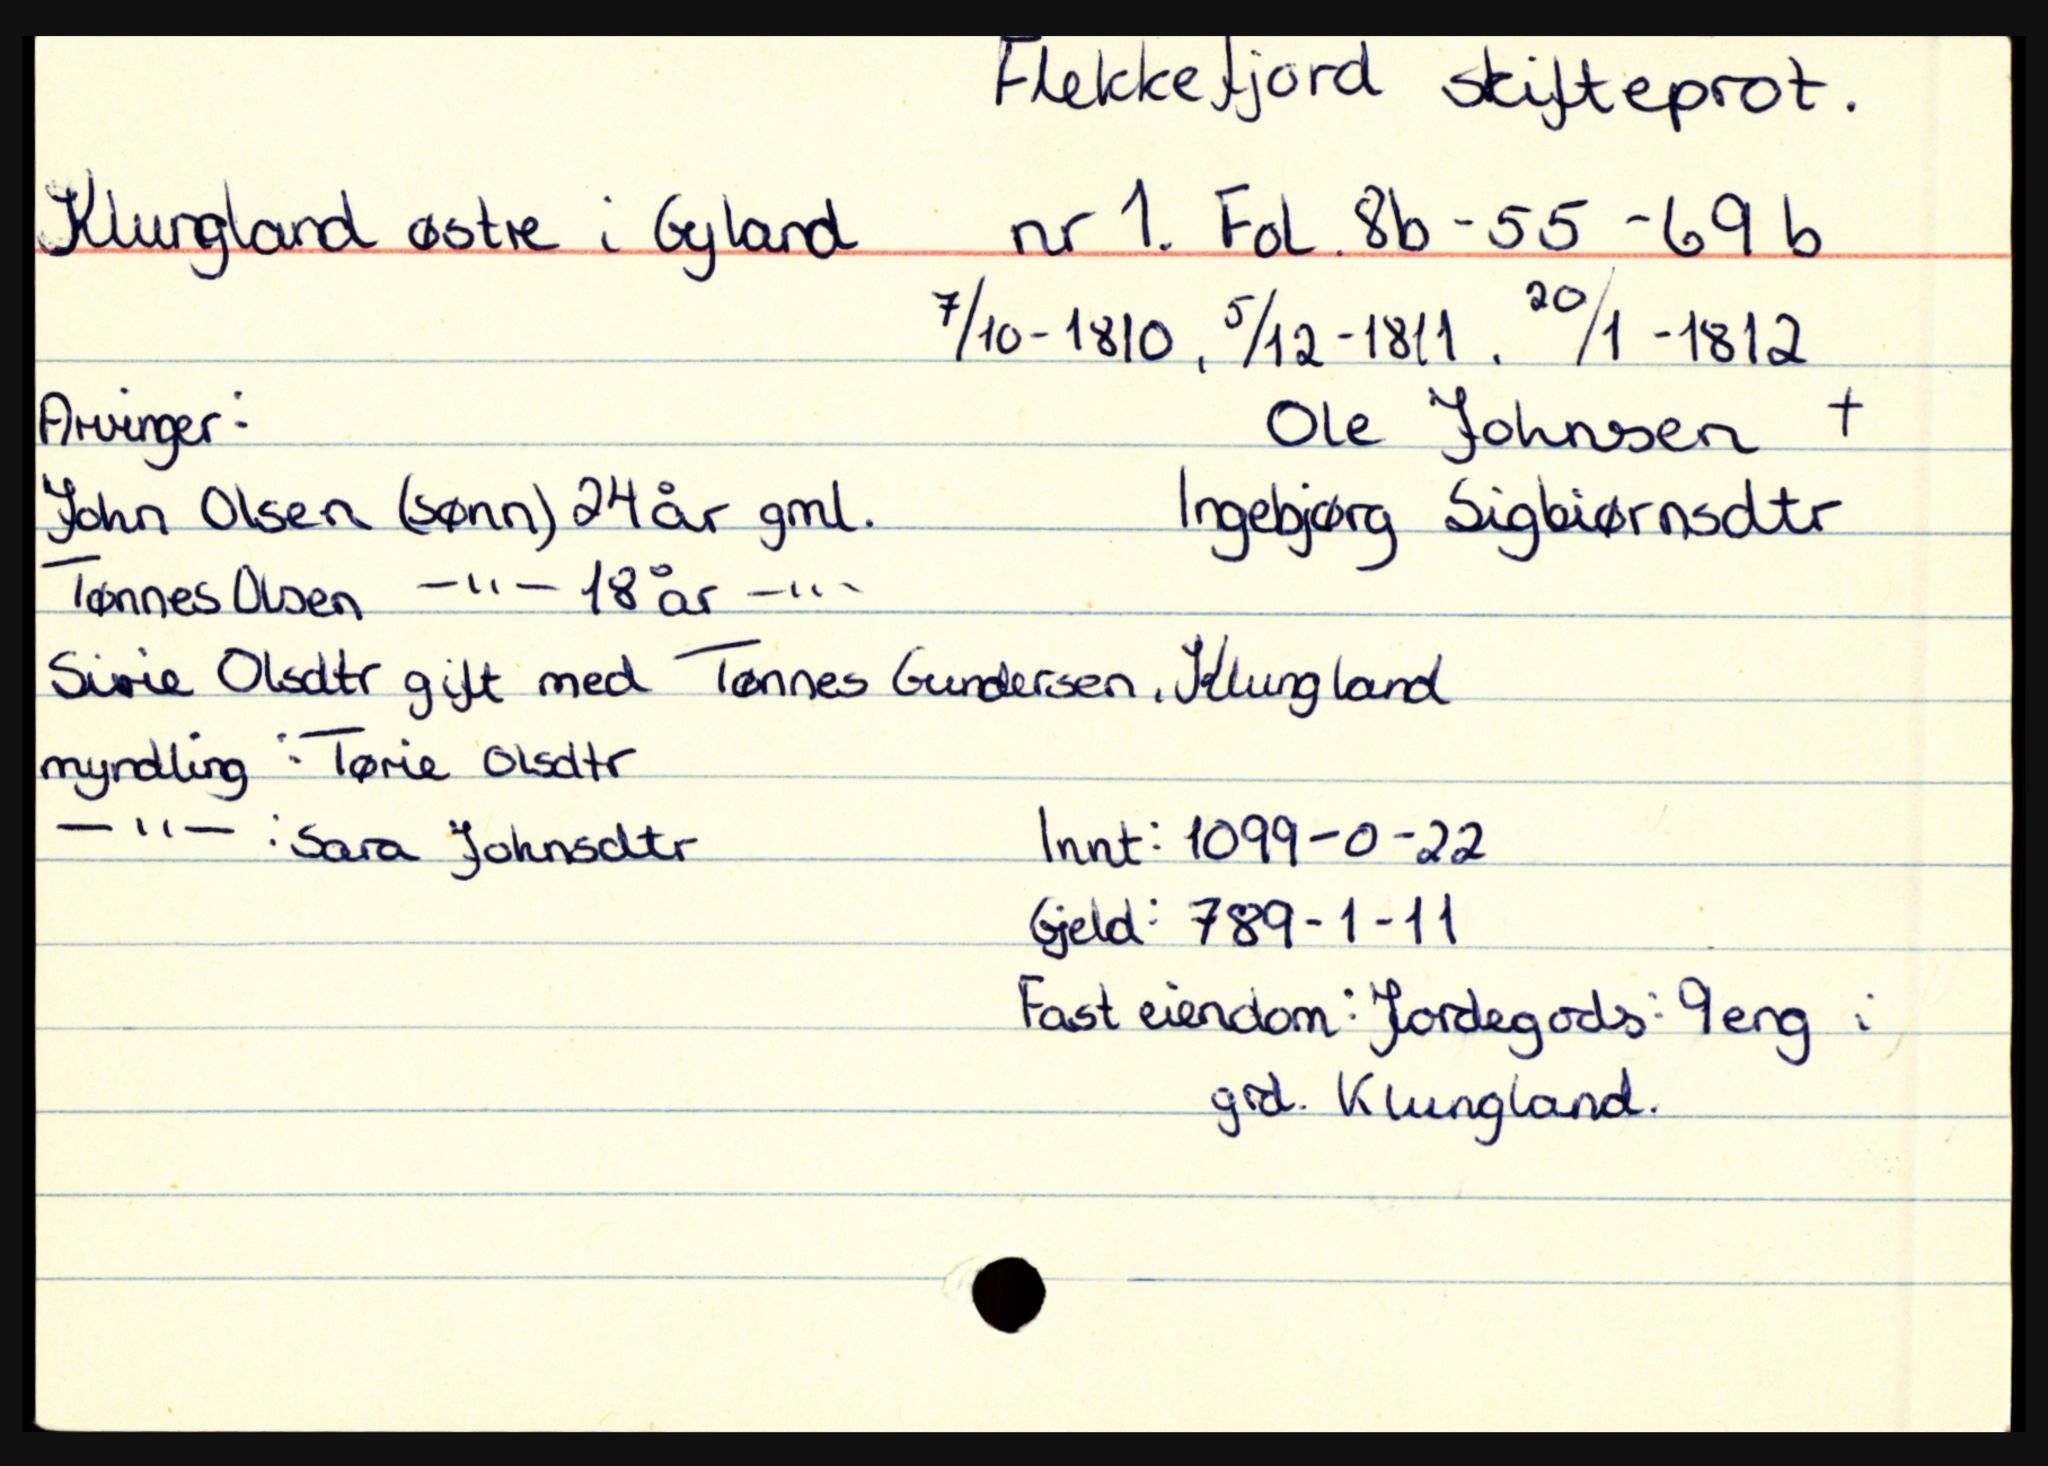 Flekkefjord skifteprot.
Klungland østre i Gyland nr 1. Fol. 8b - 55 - 69 b
7/10 - 1810, 5/12 - 1811. 20/1 - 1812
Arvinger: Ole Johnsen †
John Olsen (sønn) 24 år gml. Ingebjørg Sigbiørnsdtr
Tønnes Olsen —"— 18 år —"—
Sirie Olsdtr gift med Tønnes Gundersen, Klungland
myndling: Tørie Olsdtr
—"— : Sara Johnsdtr Innt: 1099-0-22
Gjeld: 789-1-11
Fast eiendom: Jordegods: 9 eng i
grd. Klungland.